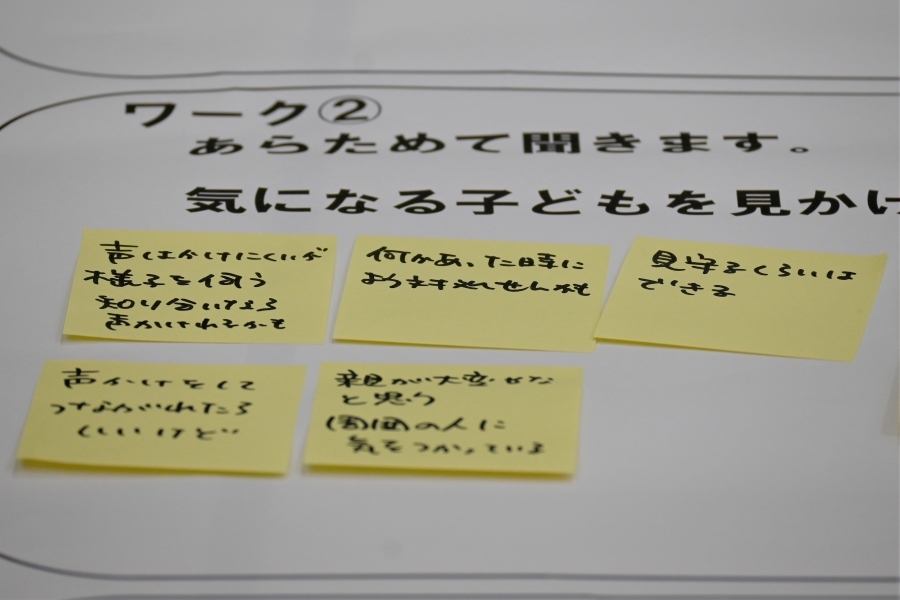 ワーク②
あらためて聞きます。
気になる子どもを見かけ
声はかけにくいが
様子を伺う
知り分いなら
声かけられるかも
何かあった時に
見守るくらいは
できる
声かけをして
つながれたら
いいけど…
親が大変かな
と思う
周囲の人に
気をつかっている